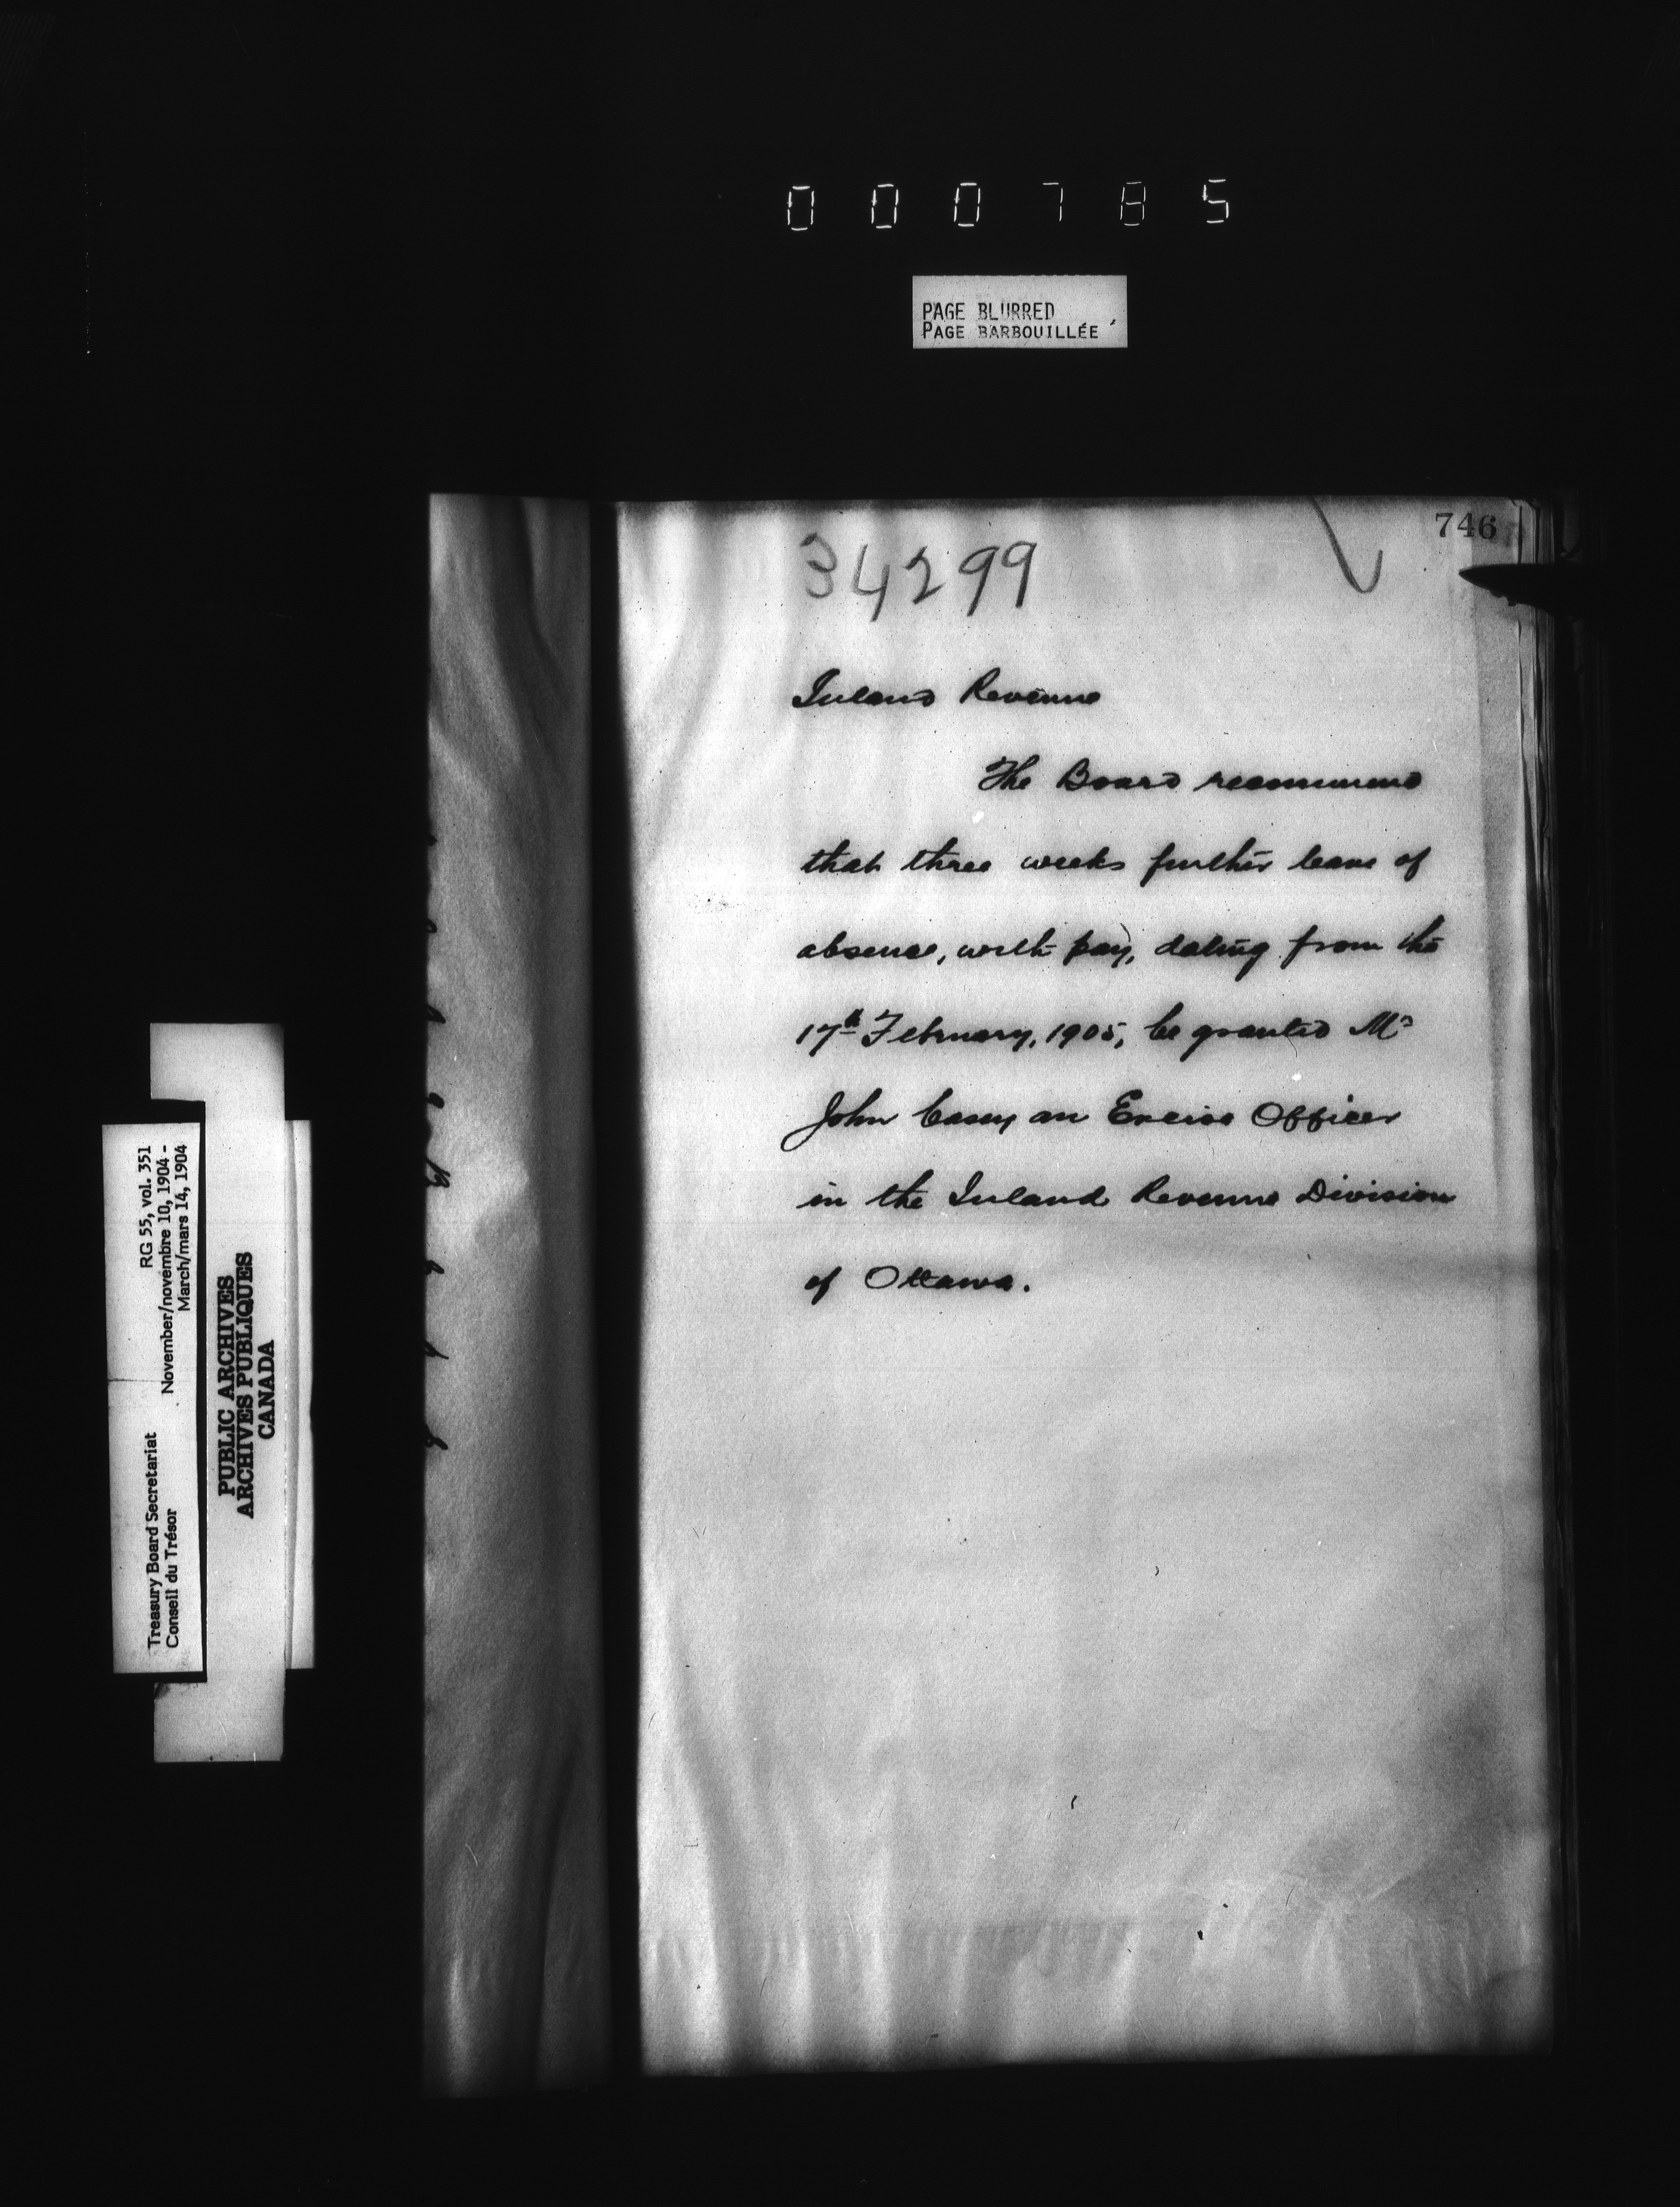 000785
PAGE BLURRED
PAGE BARBOUILLÉE
746
34299
Inland Revenue
The Board recommend
that three weeks further leave of
absence, with pay, dating from the
17th February, 1905, be granted Mr
John Casey an Excise Officer
in the Inland Revenue Division
of Ottawa.
Treasury Board Secretariat RG 55, vol. 351
Conseil du Trésor November/novembre 10, 1904 -
March/mars 14, 1904
PUBLIC ARCHIVES
ARCHIVES PUBLIQUES
CANADA